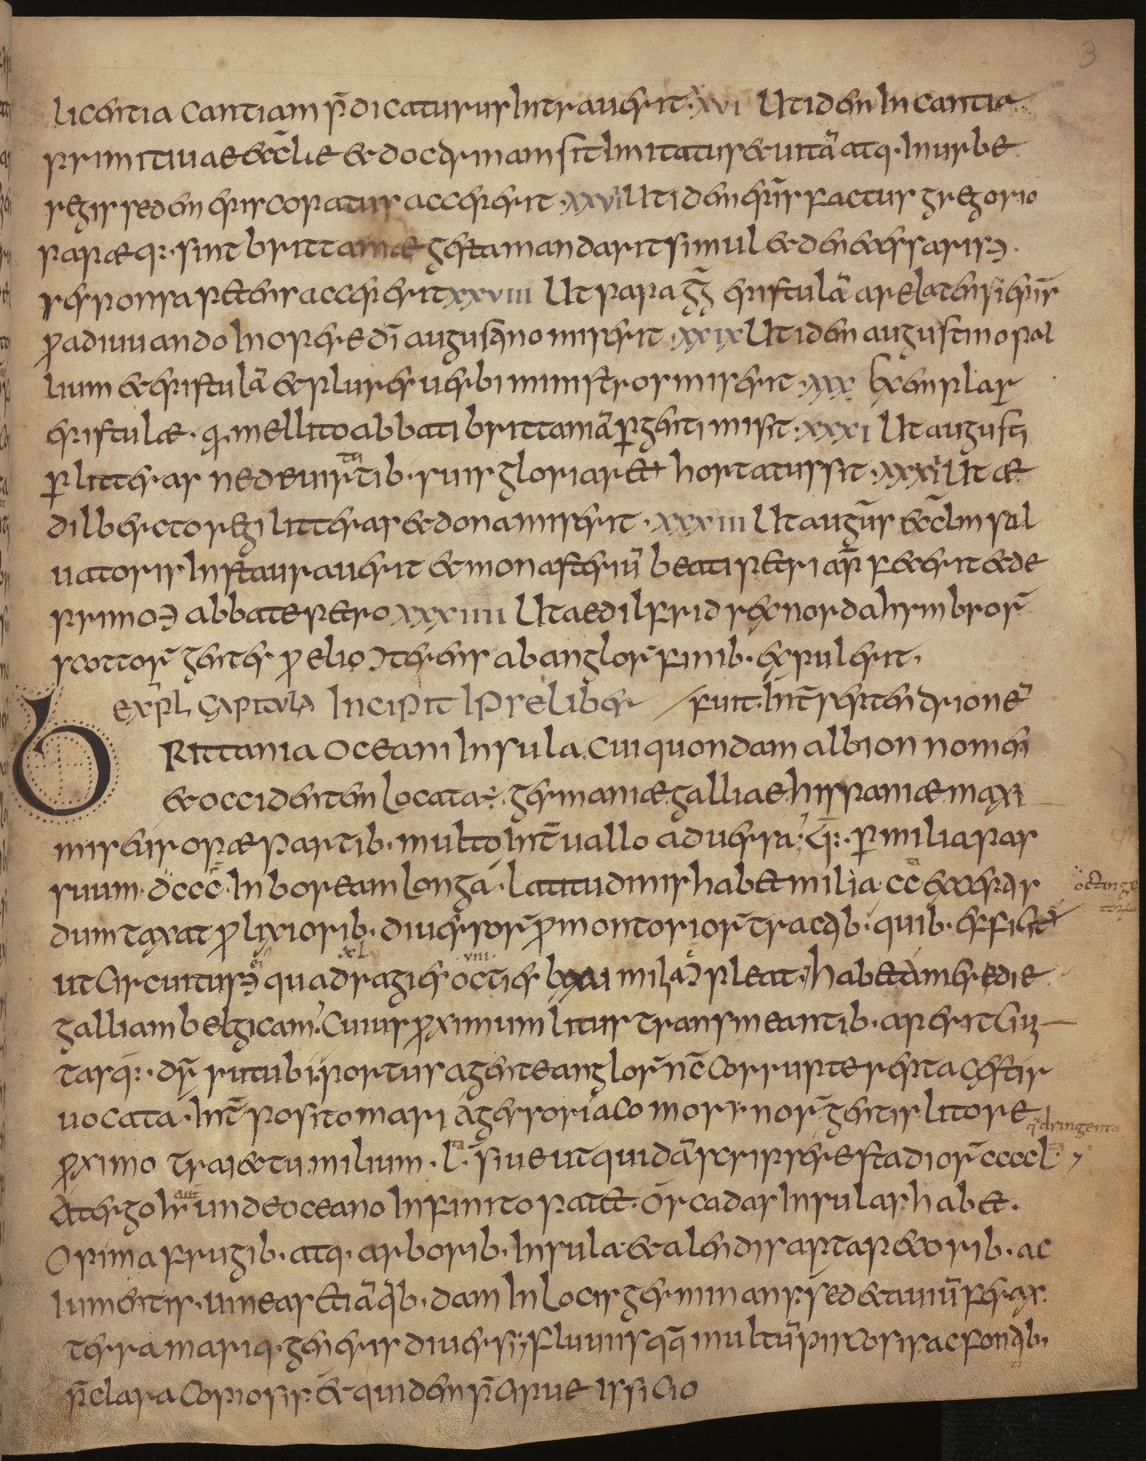 licentia cantiam p̄dicaturus intrauerit· xxvi Ut idem in cantia
primitiuae eccl̄ie & doctrinam sit imitatus & uitā atq· in urbe
regis sedem episcopatus acceperit· xxvii Ut idem ep̄s factus gregorio
papae q: sint brittaniae gesta mandarit simul & de necessariis
responsa petens acceperit xxviii Ut papa gḡ epistulā arelatensi ep̄s
ꝓ adiuuando in opere dī augustino miserit· xxix Ut idem augustino pal
lium & epistulā & plures uerbi ministros miserit· xxx Exemplar
epistulae· q· mellito abbati brittaniā ꝑgenti misit· xxxi Ut augusti
ꝑ litteras ne de uirtutib· suis gloriaret hortatus sit· xxxii Ut ae
dilbercto regi litteras & dona miserit· xxxiii Ut auḡus eccl̄im sal
uatoris instaurauerit & monasteriū beati petri ap̄ fecerit & de
primo ei abbate petro xxxiiii Ut aedilfrid rex nordahymbror̄
scottor̄ gentes ꝓelio conterens ab anglor̄ finib· expulerit,
expl̄ capitula Incipit Ipse liber / fuit· Int̄ septentrionē
BRittania oceani Insula· cui quondam albion nomen
& occidentem locata ÷· germaniae galliae hispaniae maxi
mis europae partib· multo int̄uallo aduersa· q̄: ꝑ milia pas
suum· dccc· In boream longa· Latitudinis habet milia cc exceptis
dum taxat ꝓlixiorib· diuersor̄ ꝓmontorior̄ tractib· quib· efficit̄
ut Circuitus ei quadragies octies lxxv mila conpleat· habet a meredie
galliam belgicam· Cuius ꝓximum litus transmeantib· aperit ciui
tas q̄:· dr̄ rutubi portus a gente anglor̄ nc̄ Corrupte reptacestir
uocata· Int̄posito mari a gessoriaco morynor̄ gentis litore
ꝓximo traiectu milium· l· siue ut quidā scripsere stadior̄ ccccl
A tergo h̄ unde oceano Infinito patet· Orcadas Insulas habet·
Opima frugib· atq· arborib· Insula & alendis apta pecorib· ac
iumentis· uineas etiā q̄b·dam In Locis germinans· sed & auiū ferax
terra mariq· generis diuersi; fluuiis q̄q multū piscosis· ac fontib·
p̄clara Copiosis· & quidem p̄cipue issicio
octinge
q̄dringenta